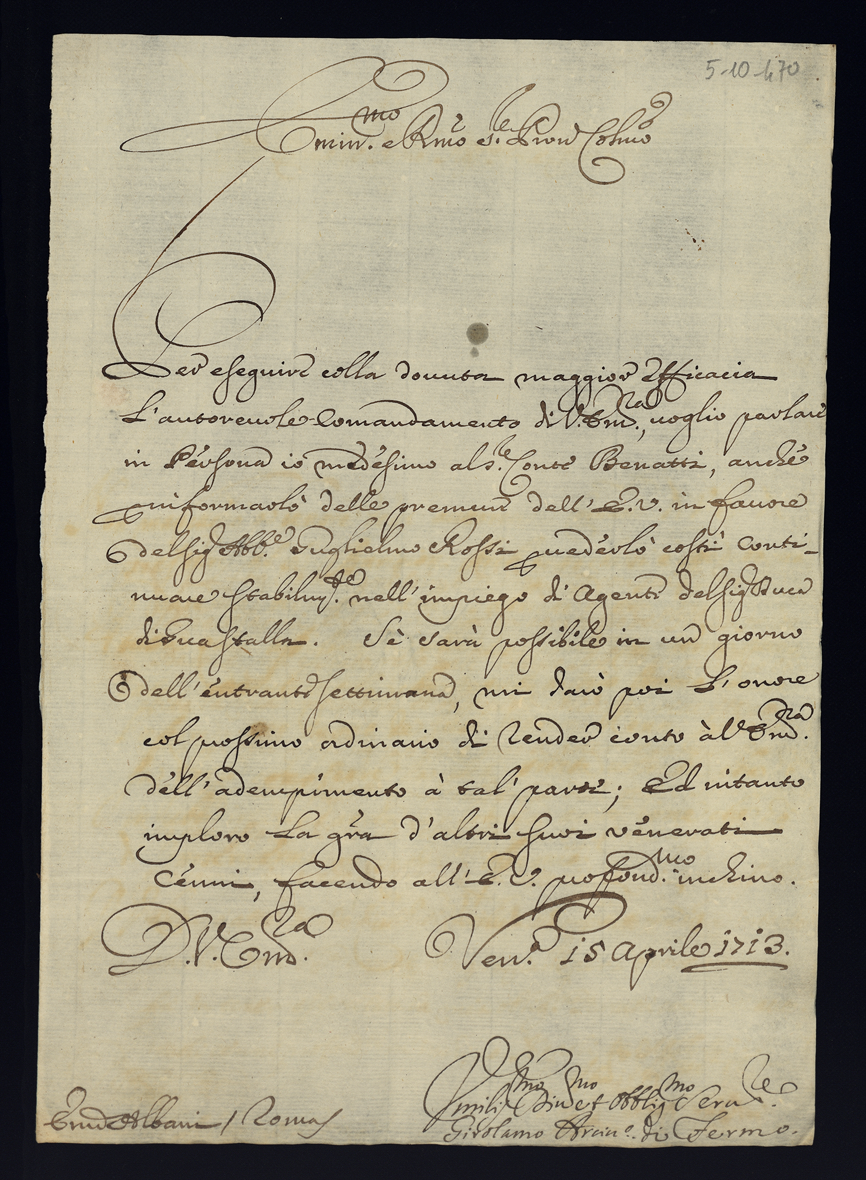 5-10-470
Emin.mo e Rmo Sr. e Pron Colmo
Per eseguire colla douuta maggior efficacia
l'autoreuole Comandamento di V. Em.za, uoglio parlare
in Persona io medesimo al Sr. Conte Benatti, anche
informarlo delle premure dell' E. V. in fauore
del Sig. Abb.e Guglielmo Rossi p uederlo costì conti-
nuare stabilm.te nell'impiego di Agente del Sig. Duca
di Guastalla. Se sarà possibile in un giorno
dell'entrante settimana, mi darò poi l'onore
col possimo ordinario di render conto à V. Em.za
dell'adempimento à tal' parte; Ed intanto
imploro la gra d'altri suoi venerati
Cenni, facendo all' E. V. profond.mo inchino.
D. V. Em.za Ven.a 15 Aprile 1713.
Umiliss.mo Diu.mo et Obblig.mo Seru.re
Em Albani / Roma Girolamo Arciu.o di Fermo.